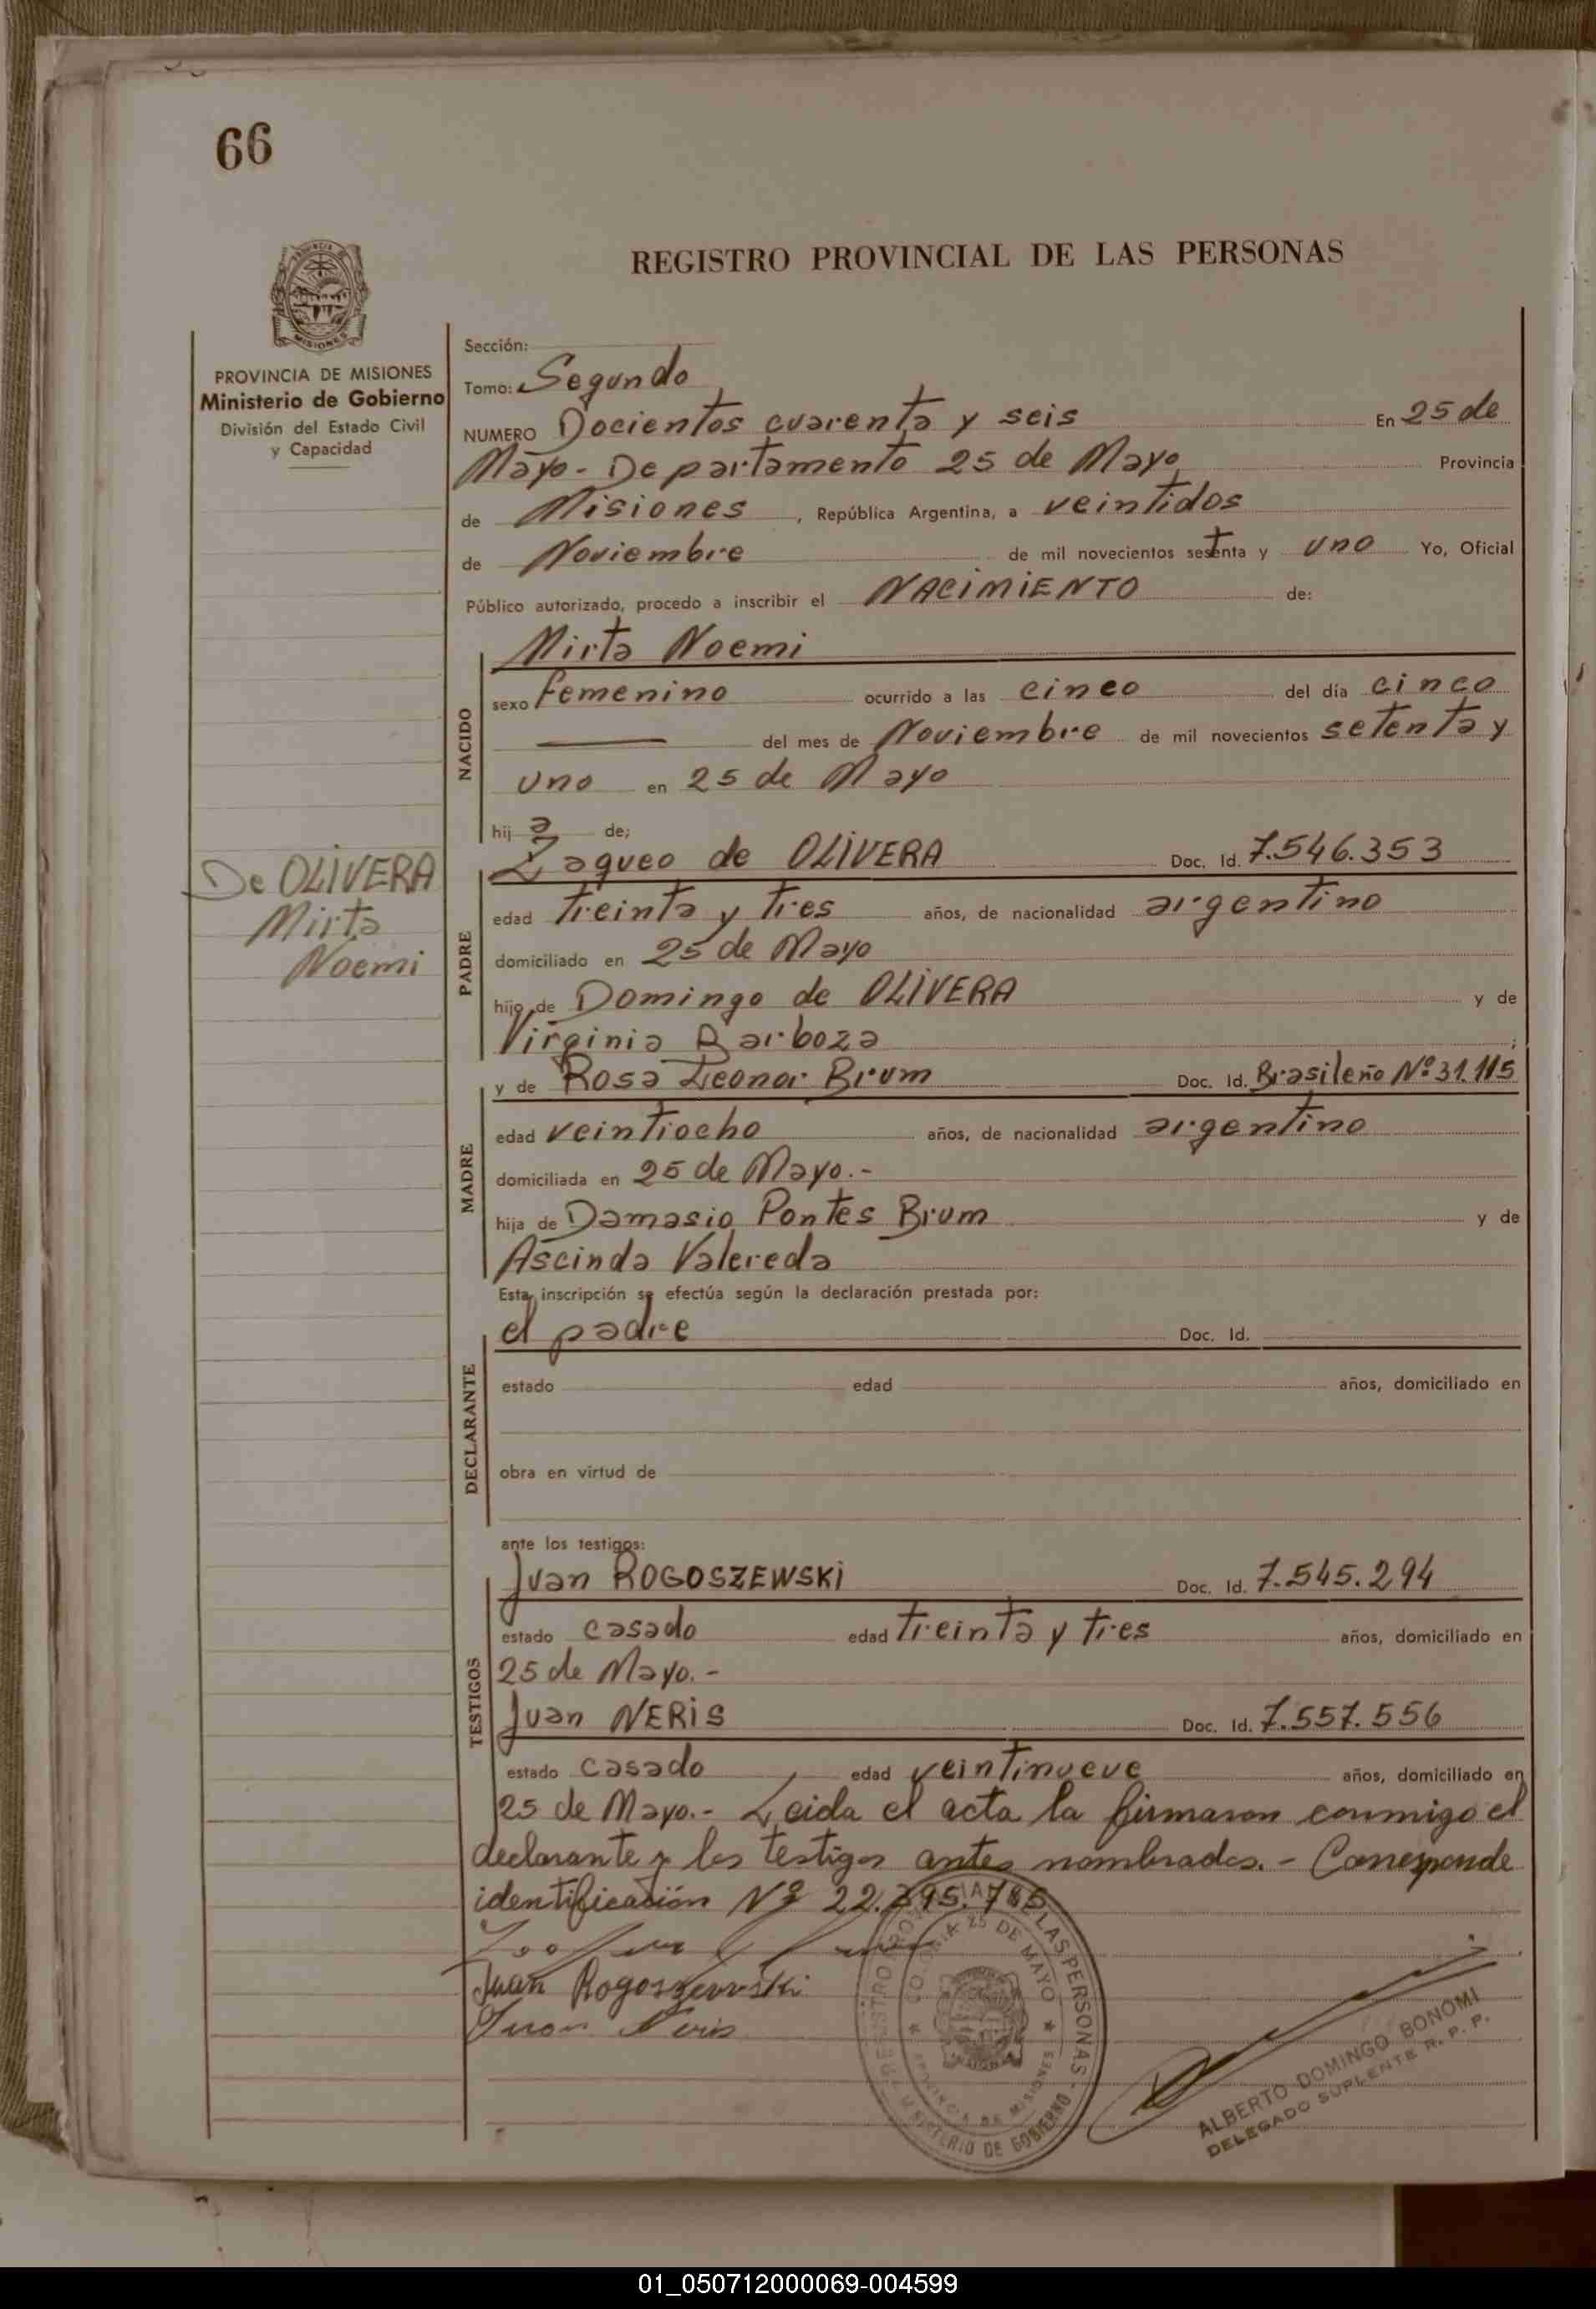 66
REGISTRO PROVINCIAL DE LAS PERSONAS
PROVINCIA DE MISIONES
Ministerio de Gobierno
División del Estado Civil
y Capacidad
Sección:
Tomo: Segundo
NUMERO Docientos cuarenta y seis En 25 de
Mayo - Departamento 25 de Mayo Provincia
de Misiones, República Argentina, a veintidos
de Noviembre de mil novecientos setenta y uno Yo, Oficial
Público autorizado, procedo a inscribir el NACIMIENTO de:
NACIDO
Mirta Noemi
sexo femenino ocurrido a las cinco del día cinco
del mes de Noviembre de mil novecientos setenta y
uno en 25 de Mayo
hija de;
De OLIVERA
Mirta
Noemi
PADRE
Zaqueo de OLIVERA Doc. Id. 7.546.353
edad treinta y tres años, de nacionalidad argentino
domiciliado en 25 de Mayo
hijo de Domingo de OLIVERA y de
Virginia Barboza ;
MADRE
y de Rosa Leonor Brum Doc. Id. Brasileño Nº 31.115
edad veintiocho años, de nacionalidad argentino
domiciliada en 25 de Mayo.-
hija de Damasio Pontes Brum y de
Ascinda Valereda
Esta inscripción se efectúa según la declaración prestada por:
DECLARANTE
el padre Doc. Id.
estado edad años, domiciliado en
obra en virtud de
ante los testigos:
TESTIGOS
Juan ROGOSZEWSKI Doc. Id. 7.545.294
estado casado edad treinta y tres años, domiciliado en
25 de Mayo.-
Juan NERIS Doc. Id. 7.557.556
estado casado edad veintinueve años, domiciliado en
25 de Mayo.- Leida el acta la firmaron conmigo el
declarante y los testigos antes nombrados.- Corresponde
identificación Nº 22.395.785
Juan Rogoszewski
Juan Neris
REGISTRO PROVINCIAL DE LAS PERSONAS - MINISTERIO DE GOBIERNO
COLONIA 25 DE MAYO * PROVINCIA DE MISIONES *
ALBERTO DOMINGO BONOMI
DELEGADO SUPLENTE R. P. P.
01_050712000069-004599